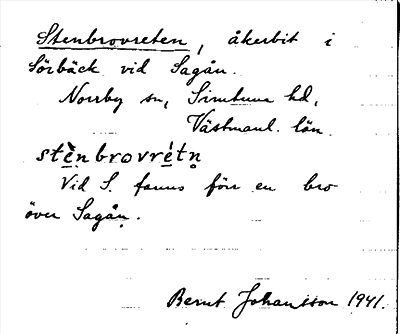 Stenbrovreten, åkerbit i
Sörbäck vid Sagån.
Norrby sn, Simtuna hd,
Västmanl. län.
stènbrovrétn̥
Vid S. fanns förr en bro
över Sagån.
Bernt Johansson 1941.